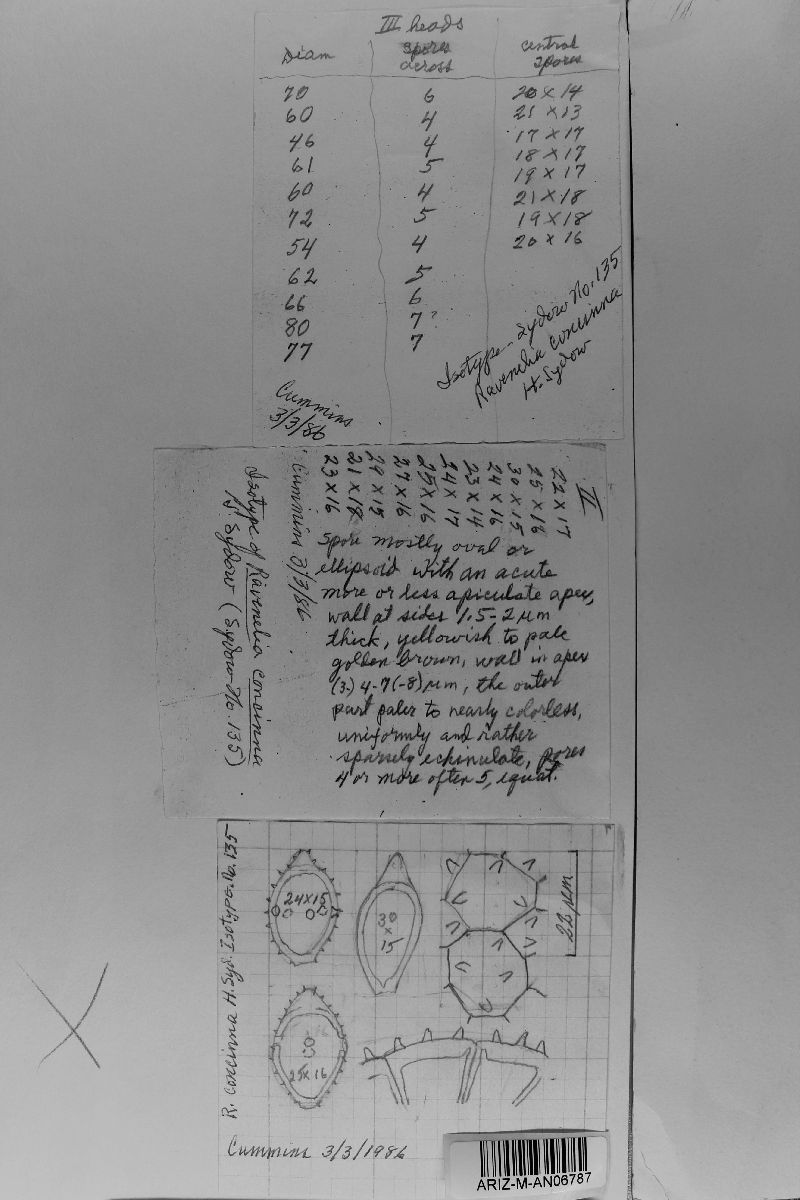 III heads
Diam spores across central spores
70 6 20 x 14
60 4 21 x 13
46 4 17 x 17
61 5 18 x 17
60 4 19 x 17
72 5 21 x 18
54 4 19 x 18
62 5 20 x 16
66 6
80 7?
77 7
Isotype - Sydow No. 135
Ravenelia concinna
H. Sydow
Cummins
3/3/86
II
22 x 17
25 x 16
30 x 15
24 x 16
23 x 14
24 x 17
25 x 16
27 x 16
24 x 15
21 x 18
23 x 16
Spore mostly oval or
ellipsoid with an acute
more or less apiculate apex,
wall at sides 1.5-2 µm
thick, yellowish to pale
golden brown, wall in apex
(3-) 4-7 (-8) µm, the outer
part paler to nearly colorless,
uniformly and rather
sparsely echinulate, pores
4 or more often 5, equat.
Cummins 3/3/86
Isotype of Ravenelia concinna
H. Sydow (Sydow No. 135)
R. concinna H. Syd. Isotype. No. 135
24x15
30
x
15
22 µm
25x16
Cummins 3/3/1986
ARIZ-M-AN06787